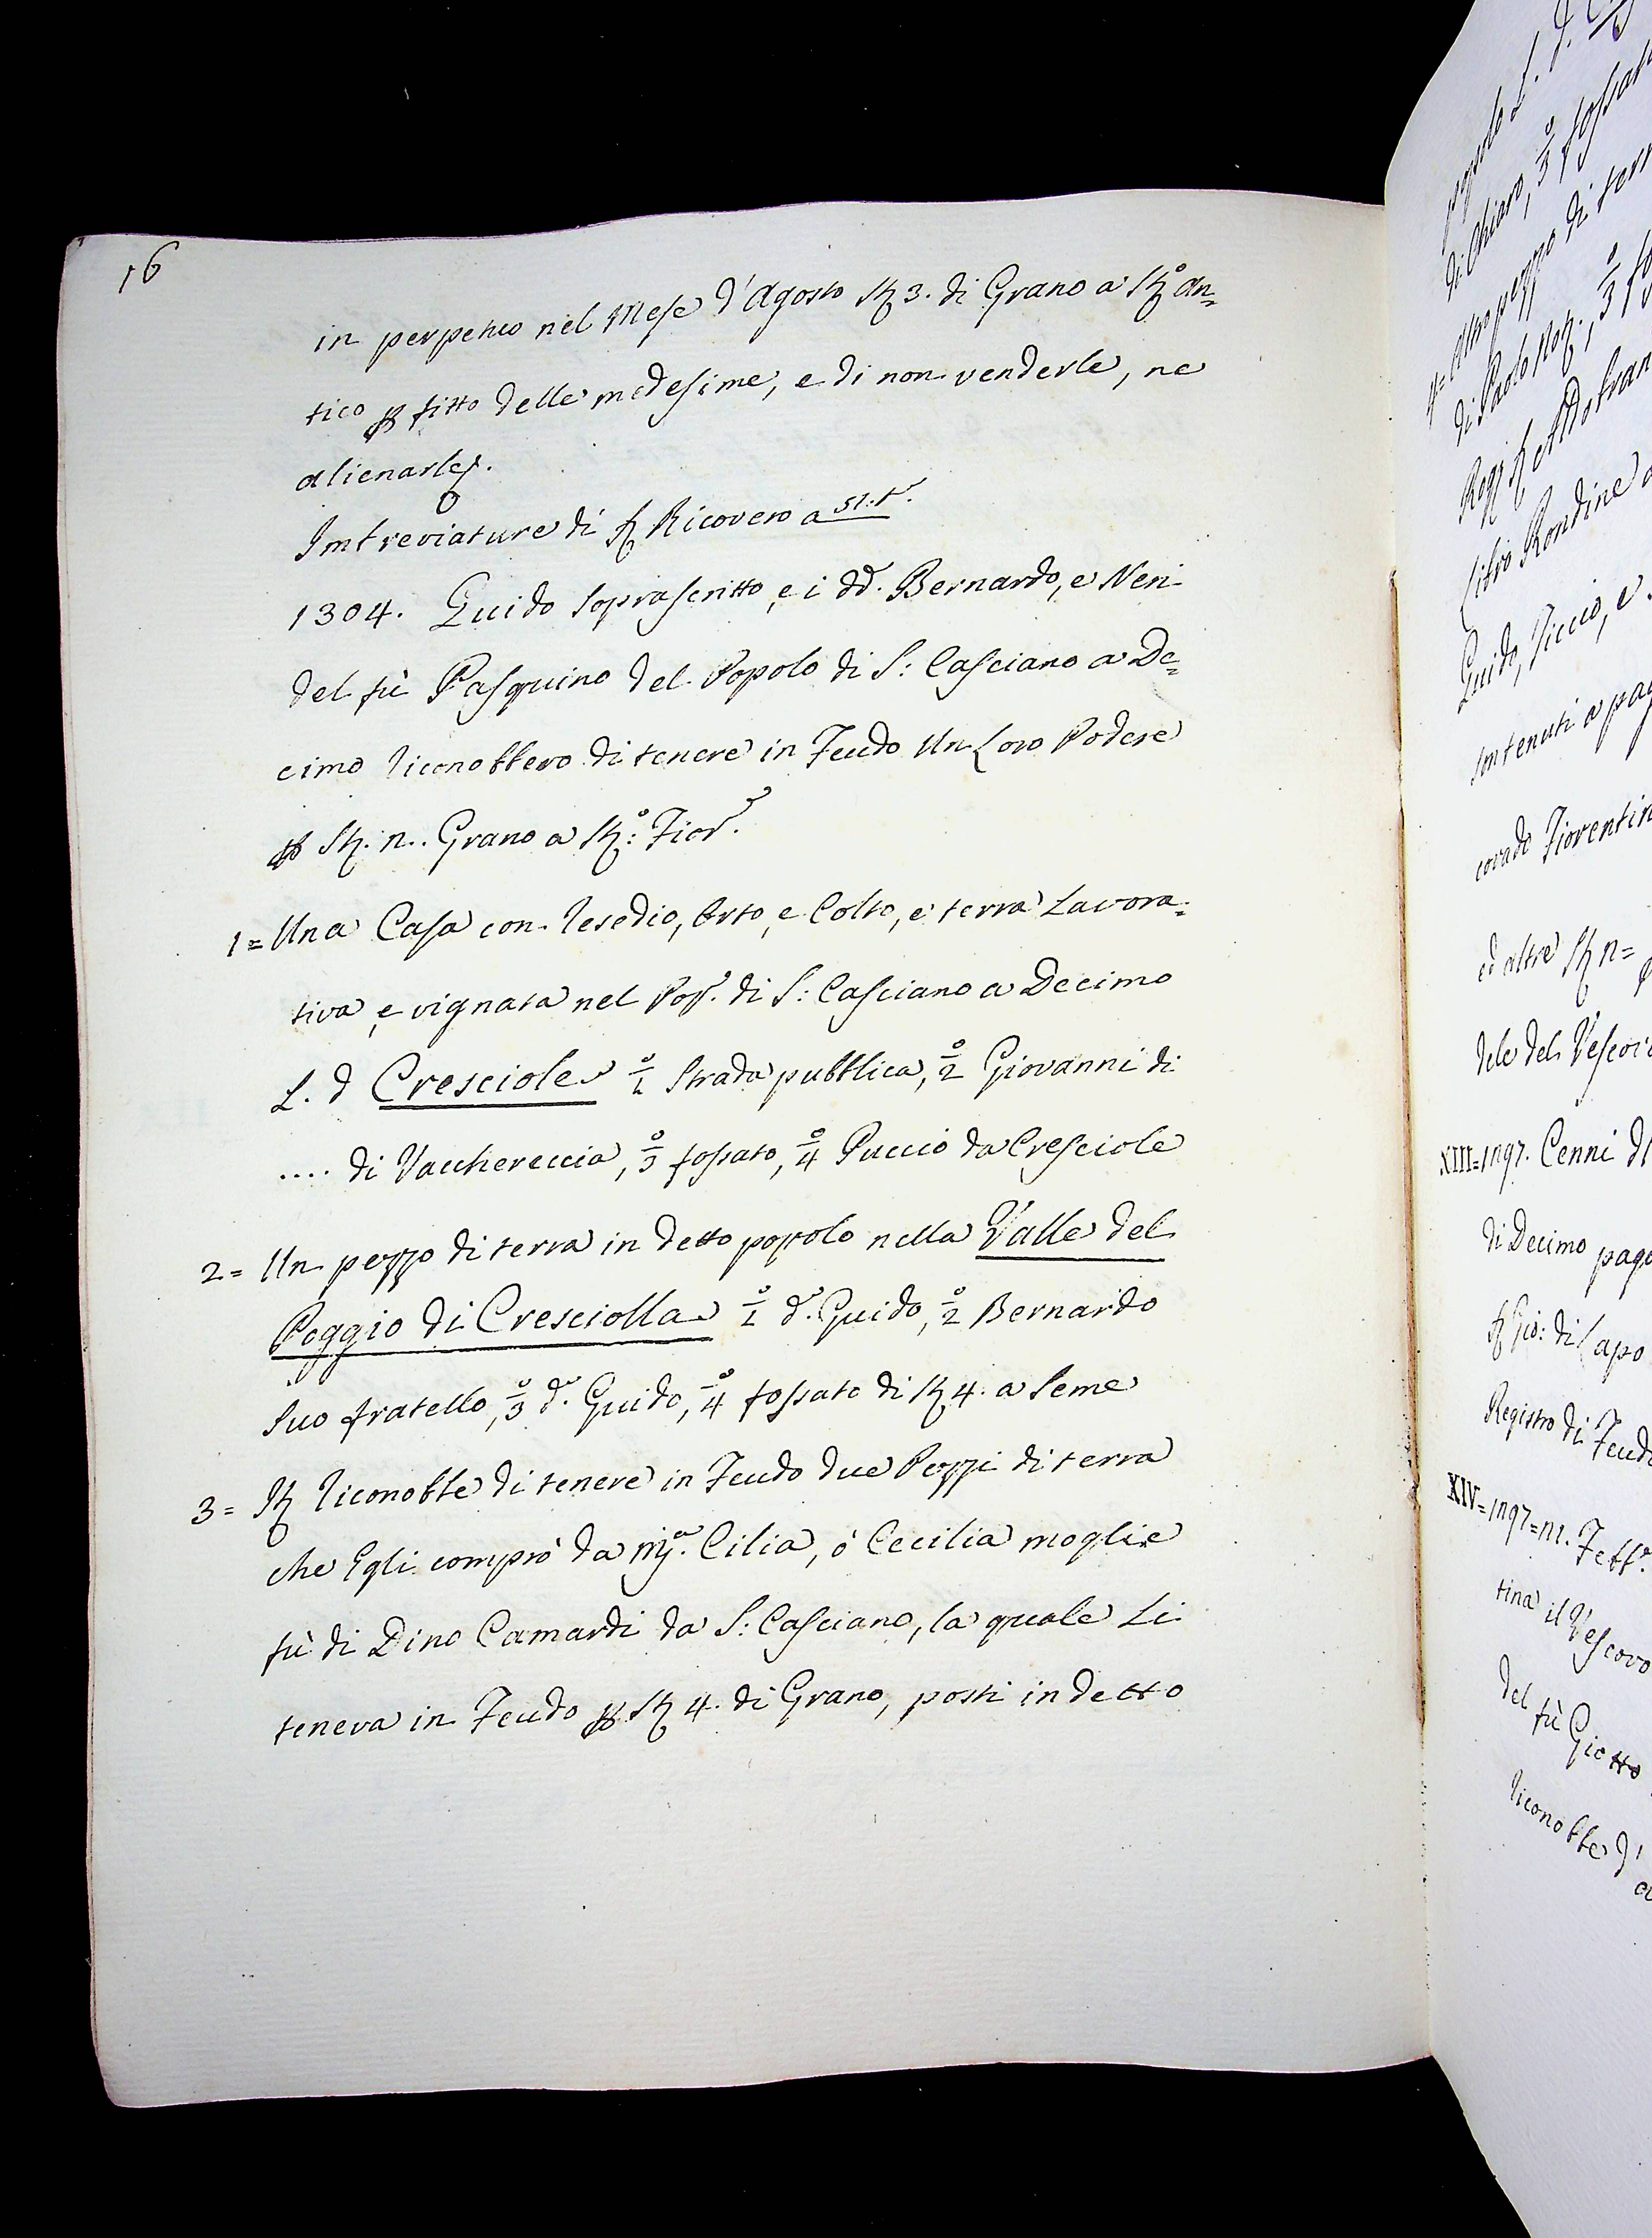 16
in perpetuo nel Mese d'Agosto St 3. di Grano a St.º An=
tico p fitto delle medesime, e di non venderle, ne
alienarle.
Imbreviature di S. Ricovero a
1304. Guido soprascritto, e i dd. Bernardo, e Neri
del fù Pasquino del Popolo di S: Casciano a De=
cimo riconobbero di tenere in Feudo un Loro Podere
p St. n.. Grano a St.º: Fior.º
1= Una Casa con Resedio, Orto, e Colto, e terra Lavora=
tiva, e vignata nel Pop.º di S: Casciano a Decimo
L. d Cresciole 1º Strada pubblica, 2º Giovanni di
.... di Vacchereccia, 3º fossato, 4º Puccio da Cresciole
2= Un pezzo di terra in detto popolo nella Valle del
Poggio di Cresciolla 1º d.º Guido, 2º Bernardo
suo fratello, 3º d.º Guido, 4º fossato di St 4. a Seme
3= It riconobbe di tenere in Feudo due Pezzi di terra
che Egli comprò da M.ª Cilia, ò Cecilia moglie
fù di Dino Camardi da S: Casciano, la quale Li
teneva in Feudo p St 4. di Grano, posti in detto
di Chiaro, 3º fossat
4= Altro pezzo di terr
di Paolo
Libro Rondine
Guido, Puccio, e
contenuti a pag
covado Fiorentin
ed altre St n=
dele del Vescov
XIII=1297. Cenni d
di Decimo pag
S Gio: di Lapo
Registro di Feud
XIV=1297=n1. Febb.º
tina il Vescovo
del fù Giotto
riconobbe d'